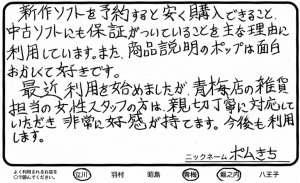 新作ソフトを予約すると安く購入できること、
中古ソフトにも保証がついていることを主な理由に
利用しています。また、商品説明のポップは面白
おかしくて好きです。
最近利用を始めましたが、青梅店の雑貨
担当の女性スタッフの方は、親切丁寧に対応して
いただき非常に好感が持てます。今後も利用
します。
ニックネーム ポムきち
よく利用されるお店を
○で囲んでください。 立川 羽村 昭島 青梅 堀之内 八王子